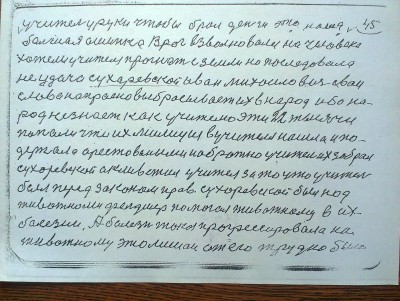 учителу руки чтобы брал деньги это наша 45
большая ошибка Враг взволновали на человека
хотели учителя прогнат с земли но последовала
неудача сухаревской иван михаилович свои
слова напрасно выбрасывает их в народ ибо на-
род незнает как учителю эти 22 тысячи
попали что их милиция в учителя нашла и по-
держала арестоваными и обратно учител их забрал
сухоревской оклеветал учителя за то што учител
был перед законом прав сухоревской был под
животными фелдшер помогал животному в их-
болезни, А болезн тока прогрессировала на
животному это лишаи от его трудно было